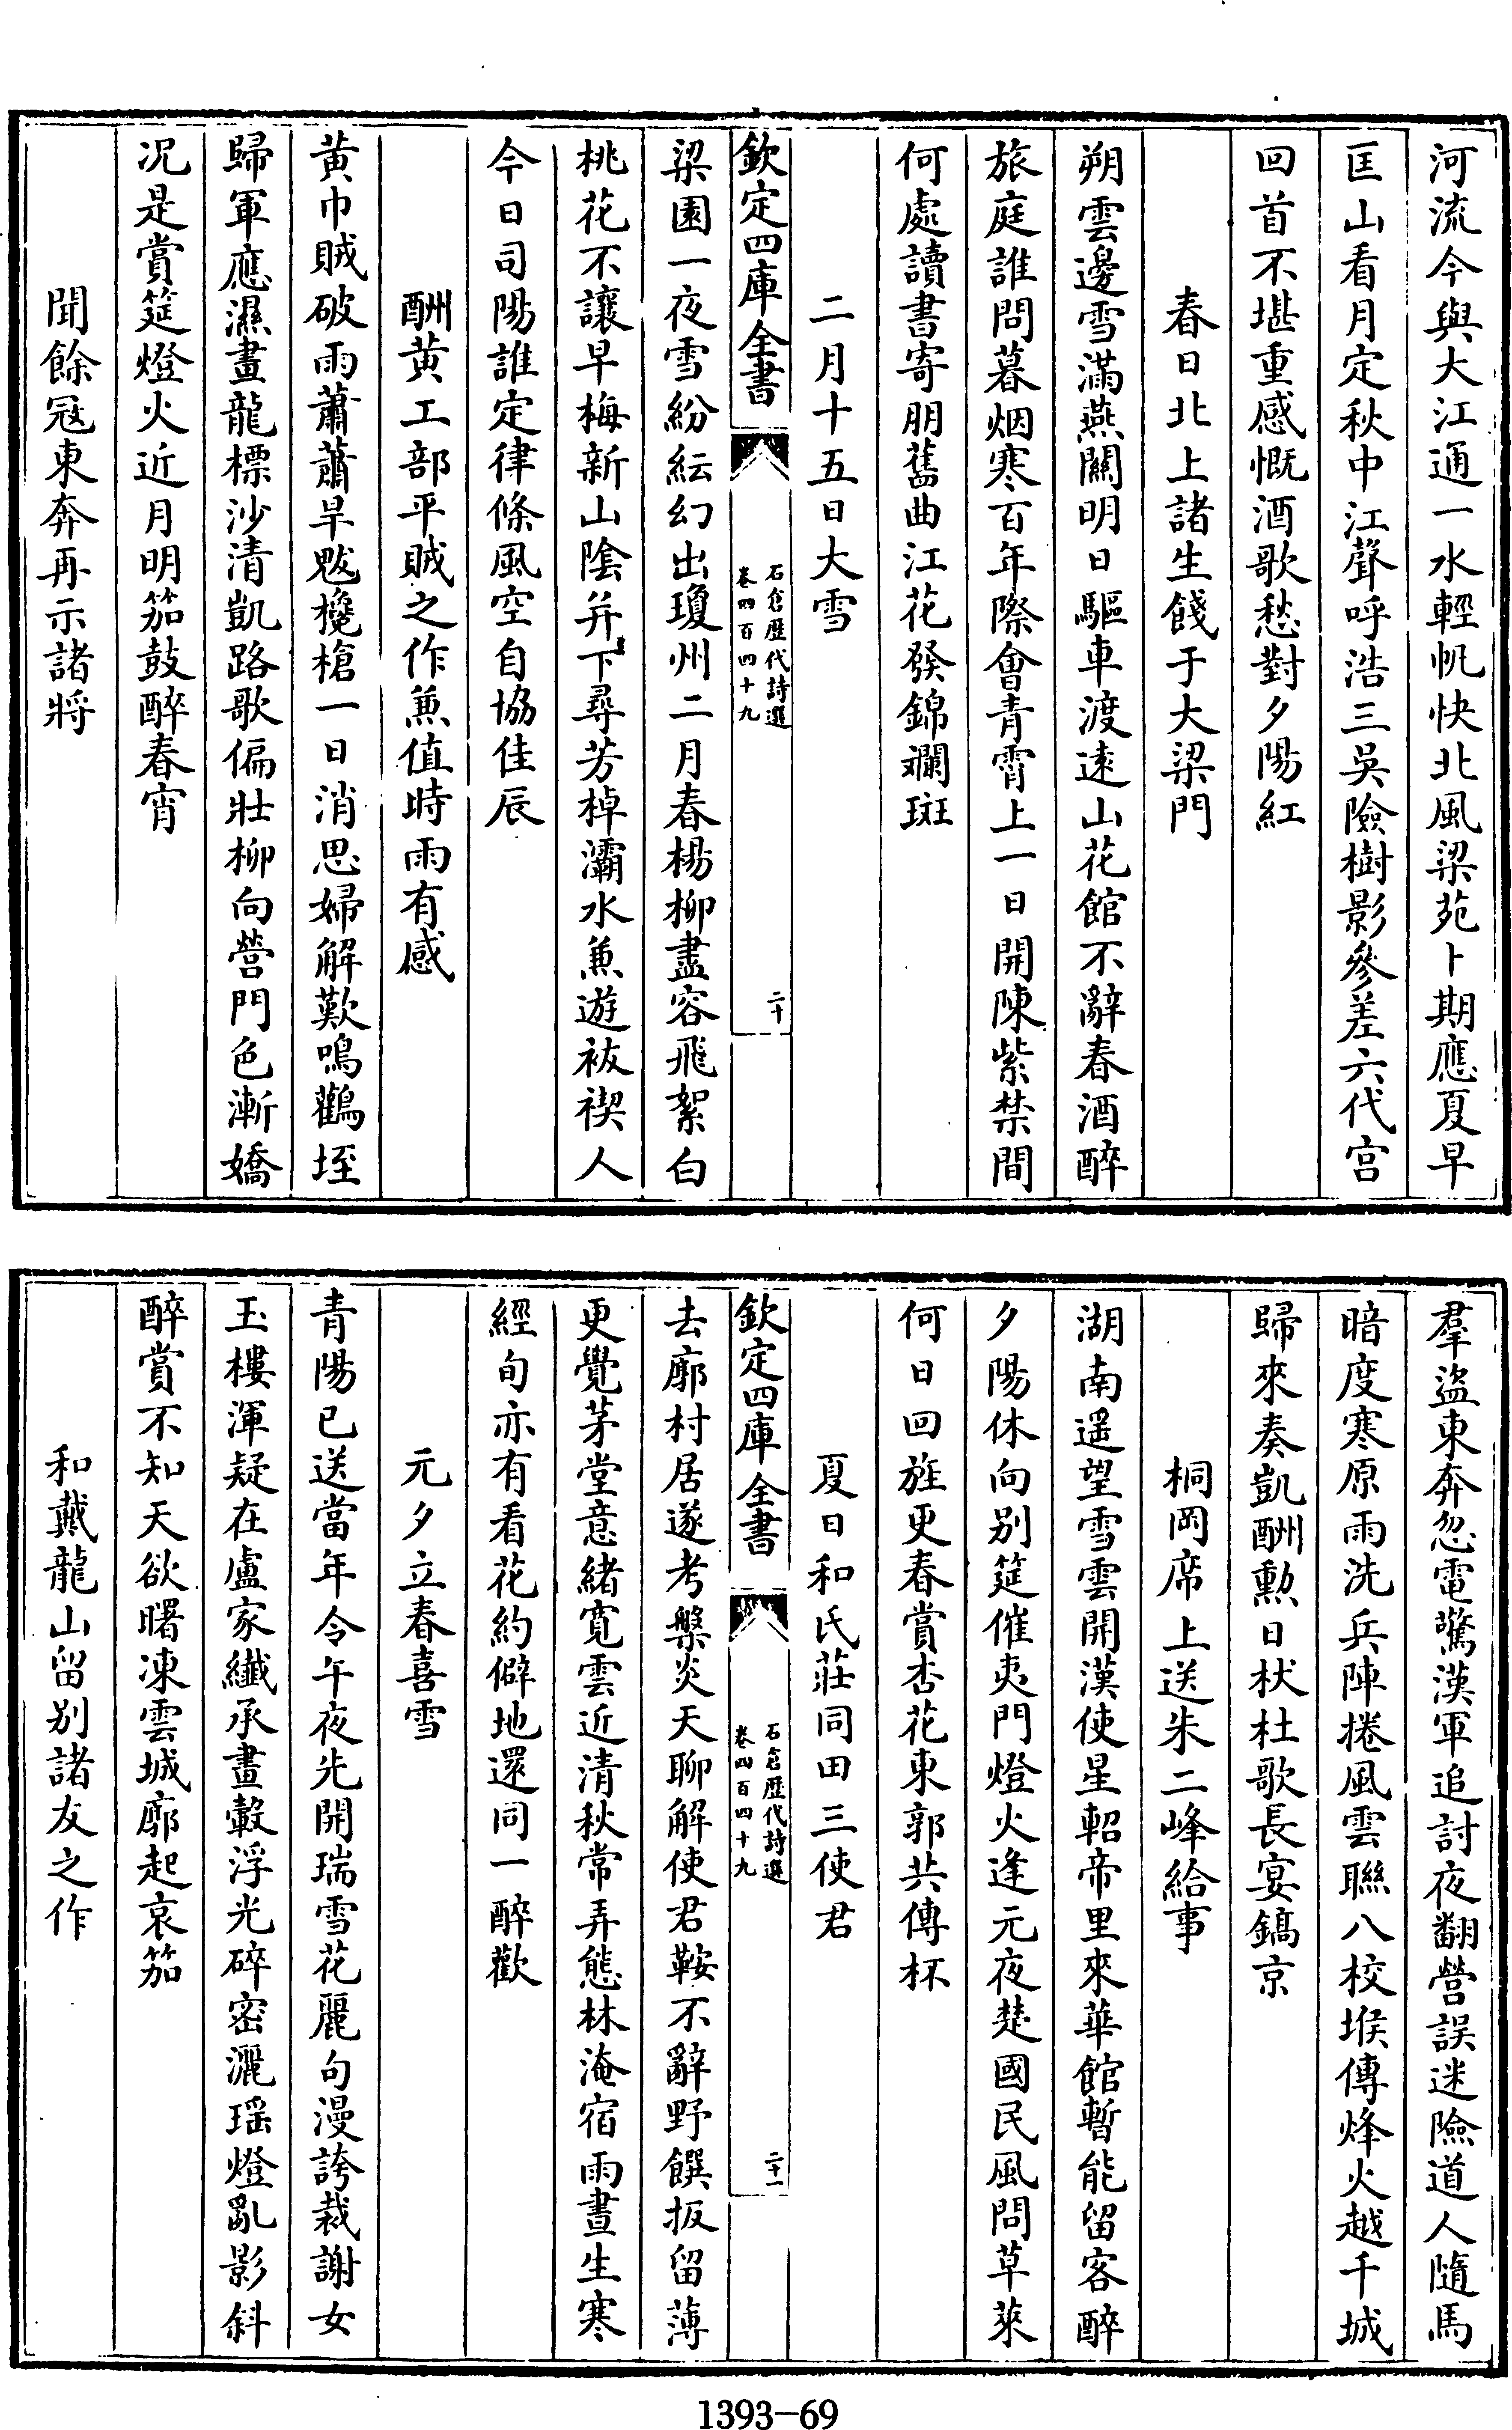 河流今與大江通一水輕帆快北風梁苑卜期應夏早
匡山看月定秋中江聲呼浩三吳險樹影參差六代宫
回首不堪重感慨酒歌愁對夕陽紅
春日北上諸生餞于大梁門
朔雲邊雪滿燕關明日驅車渡遠山花館不辭春酒醉
旅庭誰問暮烟寒百年際會青霄上一日開陳紫禁間
何處讀書寄朋舊曲江花發錦斕斑
二月十五日大雪
欽定四庫全書
石倉歷代詩選
卷四百四十九
二十
梁園一夜雪紛紜幻出瓊州二月春楊柳盡容飛絮白
桃花不讓早梅新山陰并下尋芳棹灞水兼遊袚禊人
今日司陽誰定律條風空自協佳辰
酬黄工部平賊之作兼值時雨有感
黃巾賊破雨蕭蕭旱魃欃槍一日消思婦解歎鳴鸛垤
歸軍應濕畫龍標沙清凱路歌偏壯柳向營門色漸嬌
况是賞筵燈火近月明笳鼓醉春宵
聞餘冦東奔再示諸將
羣盜東奔忽電驚漢軍追討夜翻營誤迷險道人隨馬
暗度寒原雨洗兵陣捲風雲聯八校堠傳烽火越千城
歸來奏凱酬勲日杕杜歌長宴鎬京
桐岡席上送朱二峰給事
湖南遥望雪雲開漢使星軺帝里來華館暫能留客醉
夕陽休向别筵催夷門燈火逢元夜楚國民風問草萊
何日回旌更春賞杏花東郭共傳杯
夏日和氏莊同田三使君
欽定四庫全書
石倉歷代詩選
卷四百四十九
二十一
去廓村居遂考槃炎天聊解使君鞍不辭野饌扳留薄
更覺茅堂意緒寛雲近清秋常弄態林淹宿雨晝生寒
經旬亦有看花約僻地還同一醉歡
元夕立春喜雪
青陽已送當年令午夜先開瑞雪花麗句漫誇裁謝女
玉樓渾疑在盧家纖承畫轂浮光碎密灑瑶燈亂影斜
醉賞不知天欲曙凍雲城廓起哀笳
和戴龍山留别諸友之作
1393-69